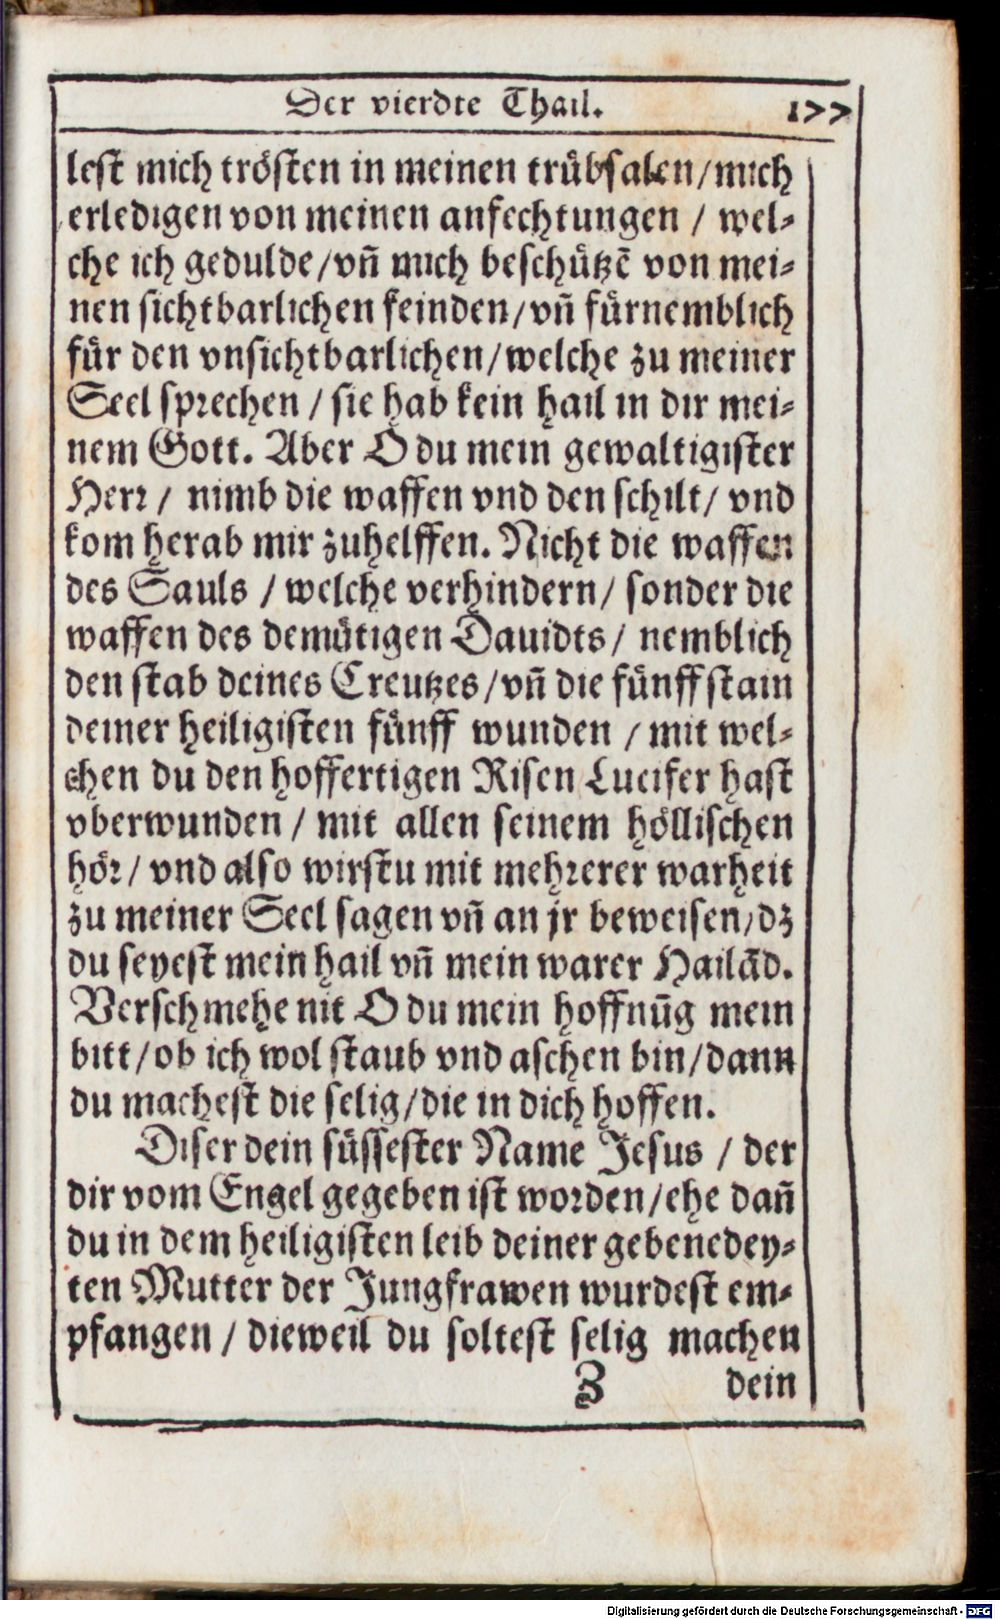 Der vierdte Thail. 177
lest mich trösten in meinen trübsalen/mich
erledigen von meinen anfechtungen / wel-
che ich gedulde/vñ mich beschützẽ von mei-
nen sichtbarlichen feinden/vñ fürnemblich
für den vnsichtbarlichen/welche zu meiner
Seel sprechen / sie hab kein hail in dir mei-
nem Gott. Aber O du mein gewaltigister
Herr / nimb die waffen vnd den schilt/ vnd
kom herab mir zuhelffen. Nicht die waffen
des Sauls / welche verhindern/ sonder die
waffen des demütigen Dauidts/ nemblich
den stab deines Creutzes/vñ die fünff stain
deiner heiligisten fünff wunden / mit wel-
chen du den hoffertigen Risen Lucifer hast
vberwunden / mit allen seinem höllischen
hör/ vnd also wirstu mit mehrerer warheit
zu meiner Seel sagen vñ an jr beweisen/dz
du seyest mein hail vñ mein warer Hailãd.
Verschmehe nit O du mein hoffnũg mein
bitt/ob ich wol staub vnd aschen bin/dann
du machest die selig/die in dich hoffen.
Diser dein süssester Name Jesus / der
dir vom Engel gegeben ist worden/ehe dañ
du in dem heiligisten leib deiner gebenedey-
ten Mutter der Jungfrawen wurdest em-
pfangen / dieweil du soltest selig machen
Z dein
Digitalisierung gefördert durch die Deutsche Forschungsgemeinschaft - DFG